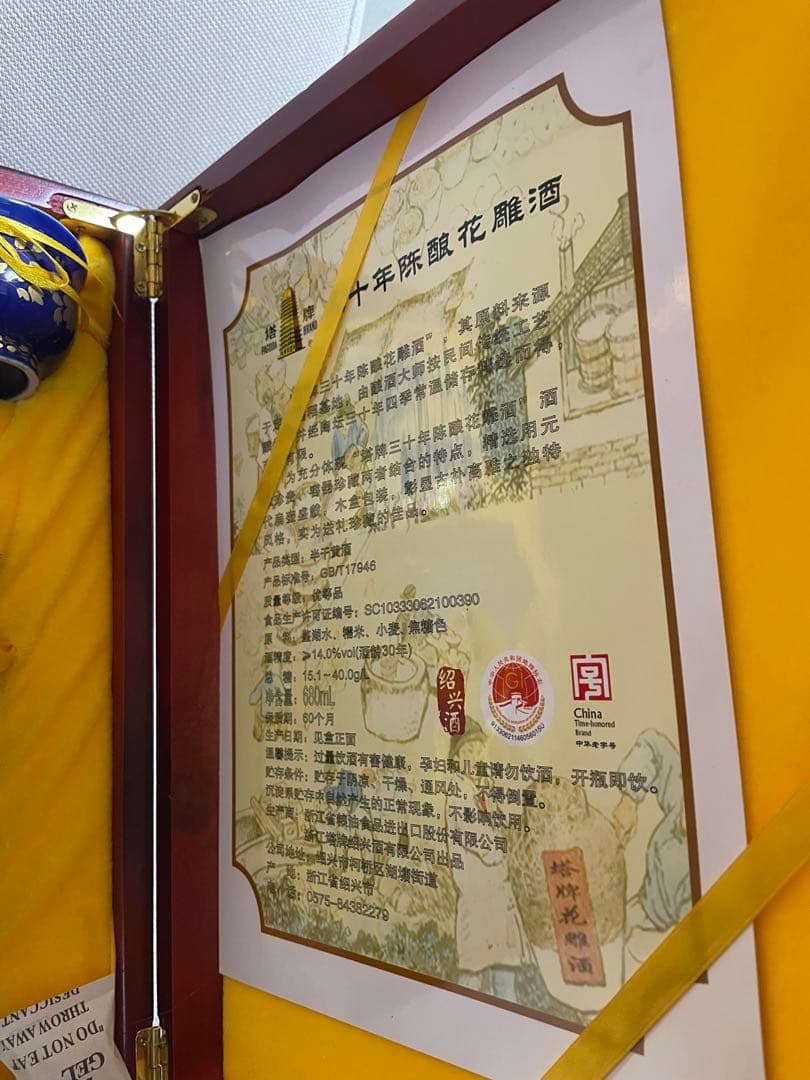 十年陈酿花雕酒
塔牌
PAGODA BRAND
牌三十年陈酿花雕酒”,其原料来源
基地,由酿酒大师按民间传统工艺
并经陶坛三十年四季常温储存 而得,
限。
为充分体现“塔牌三十年陈酿花雕酒”酒
珍贵、容器珍藏两者结合的特点,精选用元
代扁壶盛酿,木盒包装,彰显古朴高雅之独特
风格,实为送礼珍藏的佳品。
产品类型:半干黄酒
产品标准号:GB/T17946
质量等级:优等品
食品生产许可证编号:SC10333062100390
原 料:鉴湖水、糯米、小麦、焦糖色
酒精度:≥14.0%vol(酒龄30年)
总 糖:15.1-40.0g/L
净含量:680mL
保质期:60个月
生产日期:见盒正面
温馨提示:过量饮酒有害健康,孕妇和儿童请勿饮酒,开瓶即饮。
贮存条件:贮存于阴凉、干燥、通风处,不得倒置。
沉淀系贮存中自然产生的正常现象,不影响饮用。
生产商:浙江省粮油食品进出口股份有限公司
浙江塔牌绍兴酒有限公司出品
公司地址:绍兴市柯桥区湖塘街道
产 地:浙江省绍兴市
电 话:0575-84382279
绍兴酒
中华人民共和国地理标志
GI
China
Time-honored
Brand
中华老字号
塔牌花雕酒
GEL
"DO NOT EAT
THROW AWAY
DESICCANT